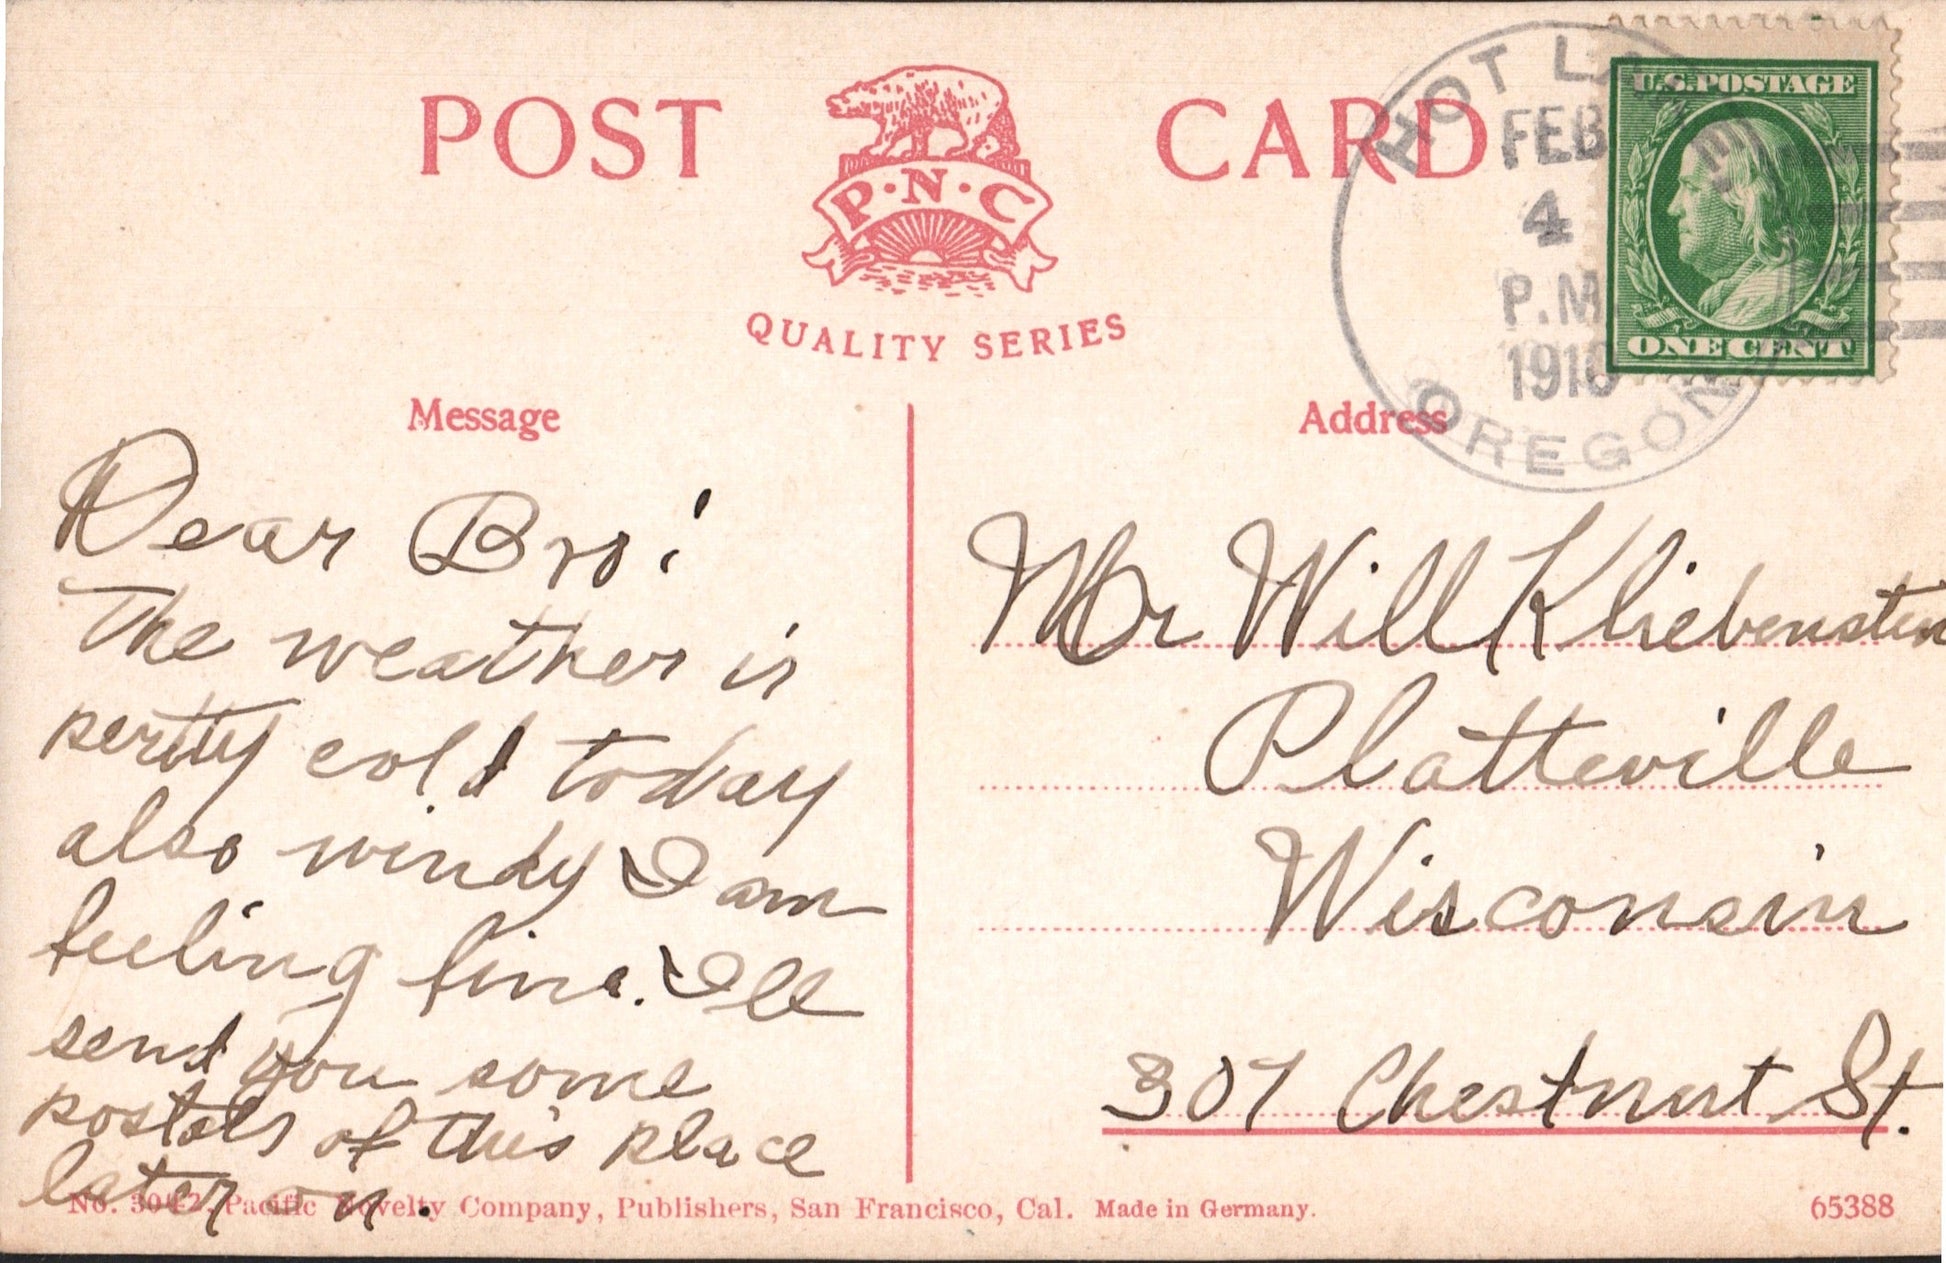 POST CARD
P·N·C
QUALITY SERIES
HOT LAKE
FEB
4
P.M.
1910
OREGON
U.S. POSTAGE
ONE CENT
Message
Address
Dear Bro:
The weather is
pertty cold today
also windy I am
feeling fine. Ill
send you some
postals of this place
later on.
Mr Will Kliebenstein
Platteville
Wisconsin
307 Chestnut St.
No. 3042. Pacific Novelty Company, Publishers, San Francisco, Cal. Made in Germany.
65388